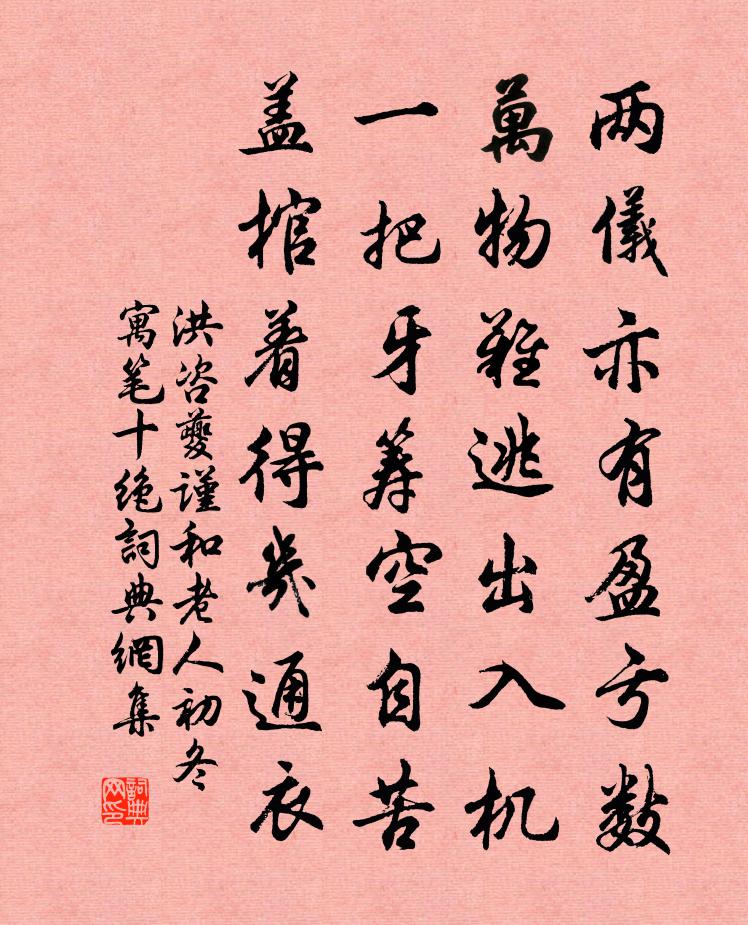 两儀亦有盈亏数
萬物難逃出入机
一把牙筹空自苦
盖棺着得幾通衣
洪咨夔謹和老人初冬
寓笔十绝詞典網集
詞典网印